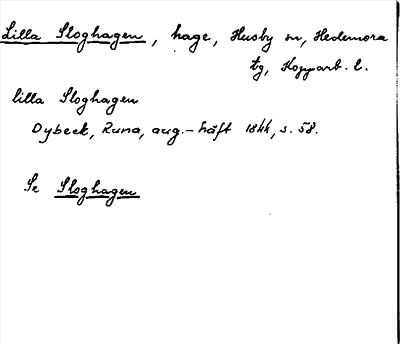 Lilla Sloghagen, hage, Husby sn, Hedemora
tg, Kopparb. l.
lilla Sloghagen
Dybeck, Runa, aug.-häft 1844, s. 58.
Se Sloghagen